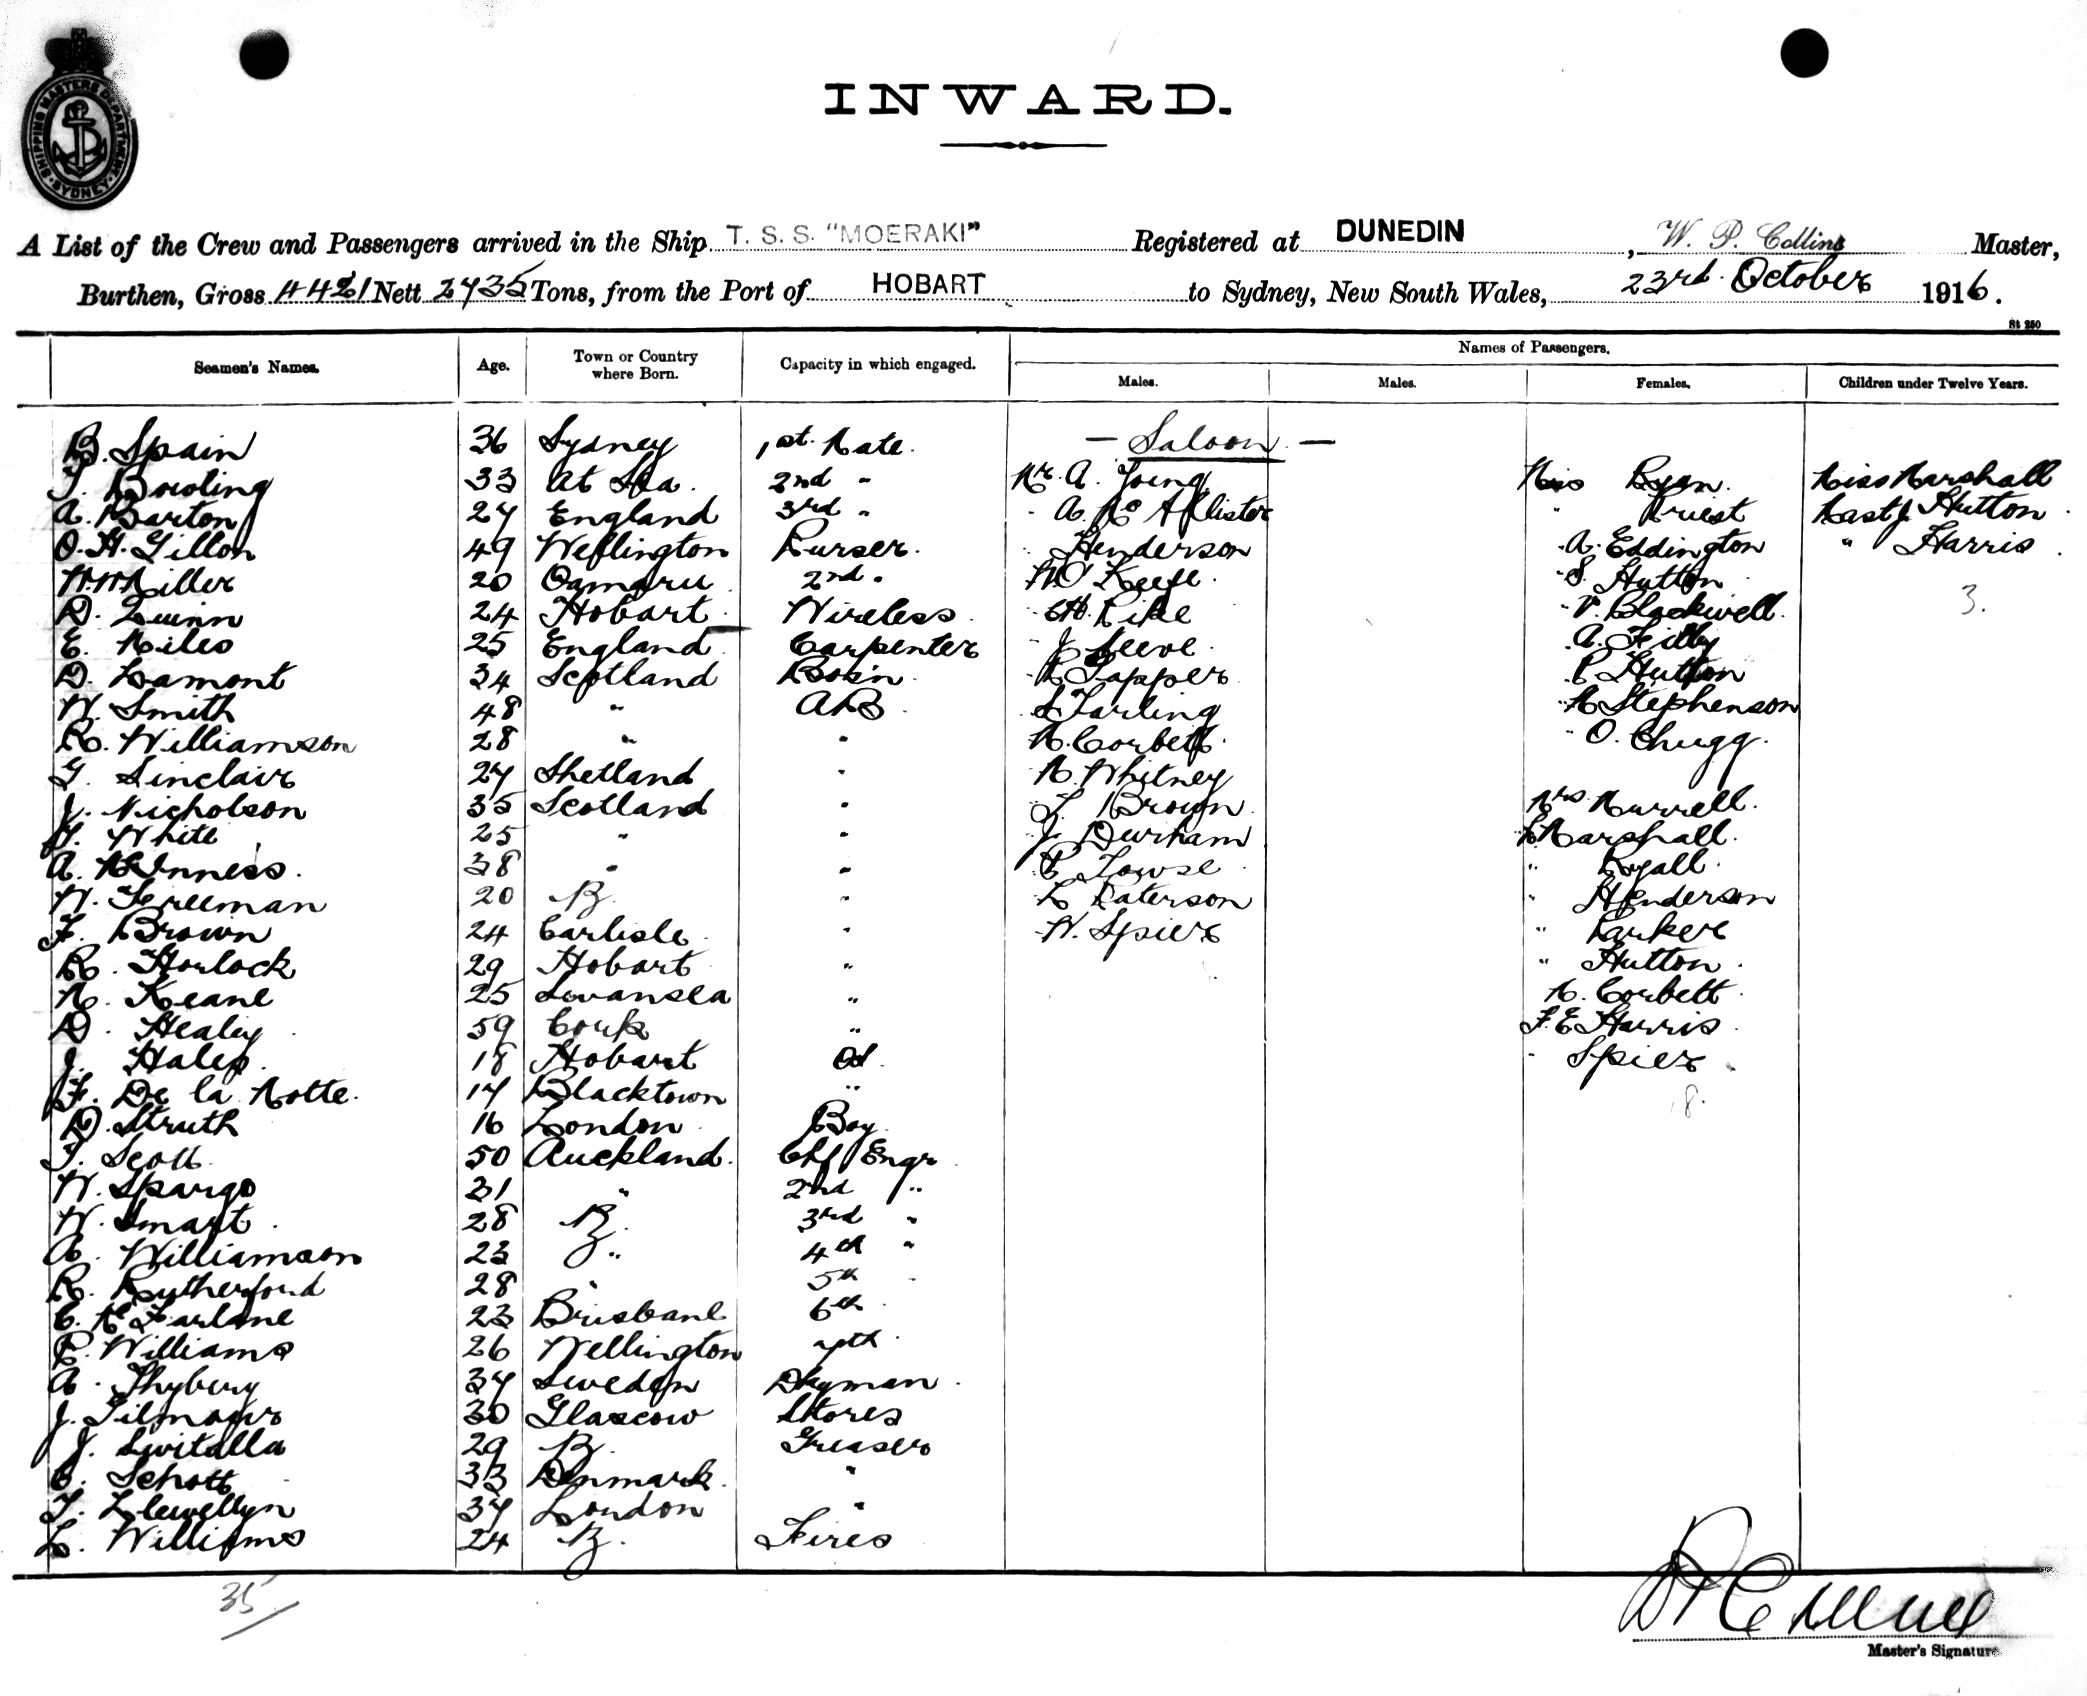 SHIPPING MASTERS DEPARTMENT SYDNEY
INWARD.
A List of the Crew and Passengers arrived in the Ship T. S. S. "MOERAKI" Registered at DUNEDIN, W. P. Collins Master,
Burthen, Gross 4421 Nett 2735 Tons, from the Port of HOBART to Sydney, New South Wales, 23rd October 1916.
St 250
Seamen's Names. Age. Town or Country where Born. Capacity in which engaged. Names of Passengers.
Males. Males. Females. Children under Twelve Years.
B. Spain 36 Sydney 1st Mate. — Saloon —
T. Bowling 33 At Sea. 2nd " Mr. A. Young Miss Ryan. Miss Marshall
A. Barton 27 England 3rd " " A. McAllister " Priest Mast J. Hutton
O. H. Gillon 49 Wellington Purser. " Henderson " A. Eddington " Harris
W. Miller 20 Oamaru 2nd " Keefe " S. Hutton
D. Quinn 24 Hobart Wireless Pike " V. Blackwell 3.
E. Miles 25 England Carpenter " J. Leeve " A. Filby
D. Lamont 34 Scotland Bosin " Tapper " P. Hutton
W. Smith 48 " AB Farling " M Stephenson
R. Williamson 28 " " M. Corbett " O. Chugg.
G. Sinclair 27 Shetland " M. Whitney
J. Nicholson 35 Scotland " Brown Mrs Murrell.
White 25 " " J. Durham Marshall.
A. McInness. 38 " " Lowse " Ryall
W. Freeman 20 " L Paterson " Henderson
F. Brown 24 Carlisle " W. Spier " Parker
R. Horlock 29 Hobart " " Hutton
M. Keane 25 Swansea " M. Corbett
D. Healey 59 Cork " F. E Harris
J. Hales 18 Hobart Od " Spier
F. De la Motte. 17 Blacktown " 18.
D. Struth 16 London Boy
T. Scott 50 Auckland. Chf Engr
W. Spargo 31 " 2nd "
W. Smart 28 3rd "
A. Williamson 23 " 4th "
R. Rutherford 28 " 5th "
C. McFarlane 23 Brisbane 6th "
P. Williams 26 Wellington 7th "
A. Thyberg 37 Sweden Dayman
J. Gilmour 30 Glascow Stores
J. Switalla 29 Greaser
C. Schott 33 Denmark "
T. Llewellyn 37 London "
L. Williams 24 Fires
35
Master's Signature